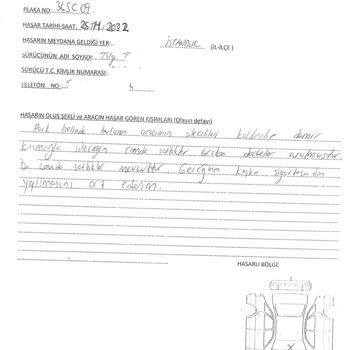 PLAKA NO: 34SC09
HASAR TARİHİ-SAAT: 25.11.2022
HASARIN MEYDANA GELDİĞİ YER: İSTANBUL (İL-İLÇE)
SÜRÜCÜNÜN ADI SOYADI: T
SÜRÜCÜ T.C. KİMLİK NUMARASI:
TELEFON NO: 5
HASARIN OLUŞ ŞEKLİ ve ARACIN HASAR GÖREN KISIMLARI (Olayın detayı)
Park halinde bulunan aracımın silecekleri kaldırılıp demir
sileceğin camda çatlaklar bırakan darbeler vurulmuştur.
Ön camda çatlaklar mevcuttur. Gereğinin kasko sigortasından
yapılmasını arz ederim.
HASARLI BÖLGE